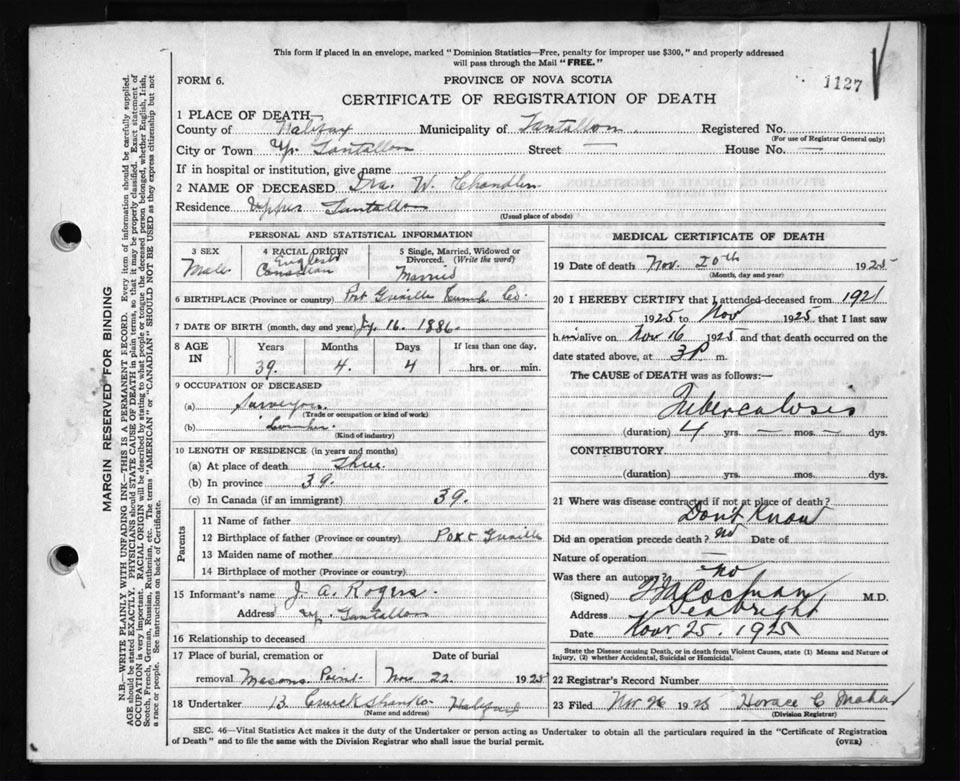 This form if placed in an envelope, marked "Dominion Statistics—Free, penalty for improper use $300," and properly addressed
will pass through the Mail "FREE."
FORM 6.
PROVINCE OF NOVA SCOTIA
1127
CERTIFICATE OF REGISTRATION OF DEATH
1 PLACE OF DEATH—
County of Halifax Municipality of Tantallon Registered No.
(For use of Registrar General only)
City or Town Up. Tantallon Street — House No. —
If in hospital or institution, give name
2 NAME OF DECEASED W. Chandler
Residence Upper Tantallon
(Usual place of abode)
PERSONAL AND STATISTICAL INFORMATION
3 SEX 4 RACIAL ORIGIN 5 Single, Married, Widowed or
Divorced. (Write the word)
English
Male Canadian Married
6 BIRTHPLACE (Province or country) Port Greville Cumb. Co.
7 DATE OF BIRTH (month, day and year) Jy. 16. 1886.
8 AGE IN Years Months Days If less than one day,
39. 4. 4 hrs. or min.
9 OCCUPATION OF DECEASED
(a) Surveyor
(Trade or occupation or kind of work)
(b) Lumber.
(Kind of industry)
10 LENGTH OF RESIDENCE (in years and months)
(a) At place of death Three
(b) In province 39.
(c) In Canada (if an immigrant) 39.
Parents
11 Name of father
12 Birthplace of father (Province or country) Port Greville
13 Maiden name of mother
14 Birthplace of mother (Province or country)
15 Informant's name J. A. Rogers.
Address Up. Tantallon
16 Relationship to deceased
17 Place of burial, cremation or Date of burial
removal Masons Point Nov 22. 1925
18 Undertaker Cruickshanks Halifax
(Name and address)
MEDICAL CERTIFICATE OF DEATH
19 Date of death Nov. 20th 1925
(Month, day and year)
20 I HEREBY CERTIFY that I attended deceased from 1921
1925 to Nov 1925 that I last saw
him alive on Nov 16 1925 and that death occurred on the
date stated above, at 3P m.
The CAUSE of DEATH was as follows:—
Tuberculosis
(duration) 4 yrs. — mos. — dys.
CONTRIBUTORY.
(duration) yrs. mos. dys.
21 Where was disease contracted if not at place of death?
Don't Know
Did an operation precede death? no Date of
Nature of operation —
Was there an autopsy? no
(Signed) Cochran M.D.
Address Seabright
Date Nov 25. 1925
State the Disease causing Death, or in death from Violent Causes, state (1) Means and Nature of
Injury, (2) whether Accidental, Suicidal or Homicidal.
22 Registrar's Record Number
23 Filed Nov 26 1925 Horace C
(Division Registrar)
SEC. 46—Vital Statistics Act makes it the duty of the Undertaker or person acting as Undertaker to obtain all the particulars required in the "Certificate of Registration
of Death" and to file the same with the Division Registrar who shall issue the burial permit. (OVER)
MARGIN RESERVED FOR BINDING
N.B.—WRITE PLAINLY WITH UNFADING INK—THIS IS A PERMANENT RECORD. Every item of information should be carefully supplied.
AGE should be stated EXACTLY. PHYSICIANS should STATE CAUSE OF DEATH in plain terms, so that it may be properly classified. Exact statement of
OCCUPATION is very important. RACIAL ORIGIN will be described by stating to what people or tongue the deceased person belonged, whether English, Irish,
Scotch, French, German, Russian, Ruthenian, etc. The terms "AMERICAN" or "CANADIAN" SHOULD NOT BE USED as they express citizenship but not
a race or people. See instructions on back of Certificate.